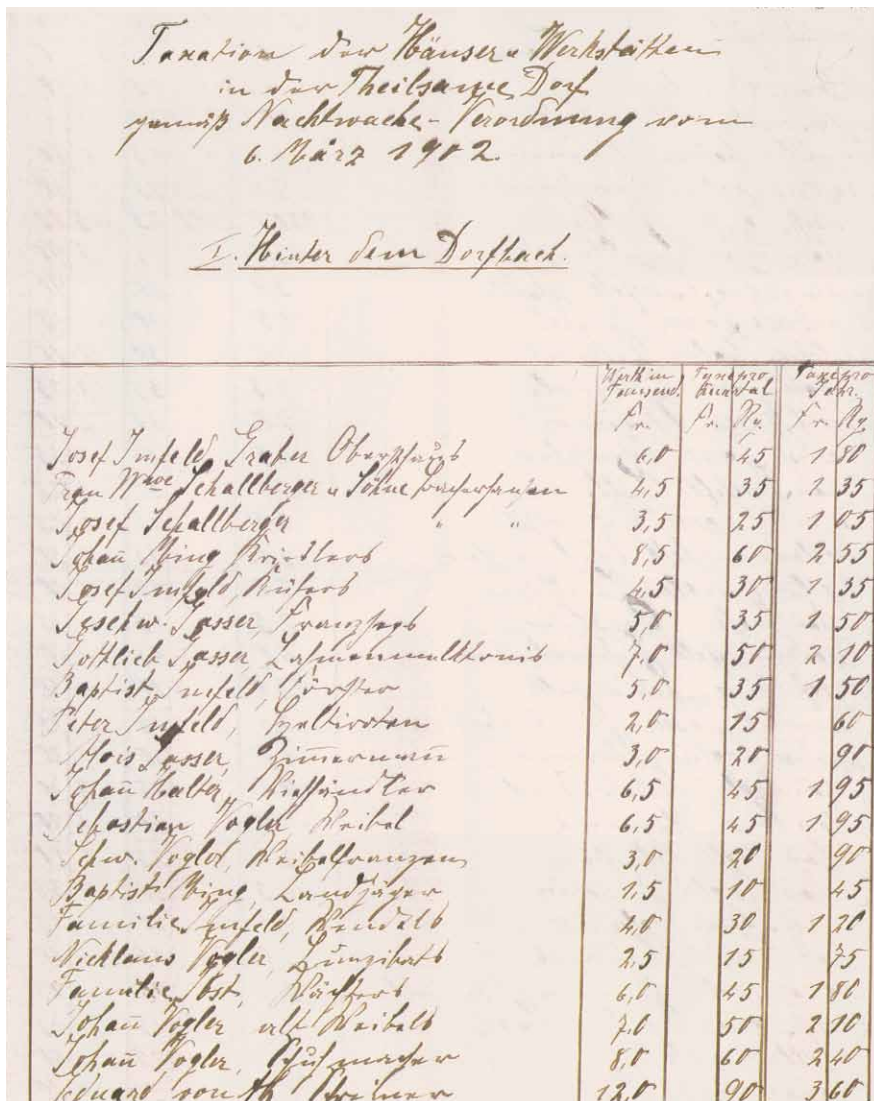 Taxation der Häuser u Werkstätten
in der Theilsame Dorf
gemäß Nachtwache-Verordnung vom
6. März 1902.
I. Hinter dem Dorfbach.
Werth in Taxe pro Taxe pro
Tausend. Quartal Jahr.
Fr. Fr. Rp. Fr. Rp.
Josef Imfeld Graber 6,0 45 1 80
Frau Wwe Schallberger u Söhne 4,5 35 1 35
Josef Schallberger " " 3,5 25 1 05
Johañ Ming 8,5 60 2 55
Josef Imfeld, Küfers 4,5 30 1 35
Geschw. Gasser, 5,0 35 1 50
Gottlieb Gasser, 7,0 50 2 10
Baptist Imfeld, Förster 5,0 35 1 50
Peter Imfeld, 2,0 15 60
Alois Gasser, Zim̄ermañ 3,0 20 90
Johañ Halter, Viehhändler 6,5 45 1 95
Sebastian Vogler Weibel 6,5 45 1 95
Schw. Vogler, Weibelfranzen 3,0 20 90
Baptist Ming, Landjäger 1,5 10 45
Familie Imfeld, Wendels 4,0 30 1 20
Nicklaus Vogler, 2,5 15 75
Familie Abst, Wächters 6,0 45 1 80
Johañ Vogler alt Weibels 7,0 50 2 10
Johañ Vogler, Schuhmacher 8,0 60 2 40
Eduard von Ah 12,0 90 3 60